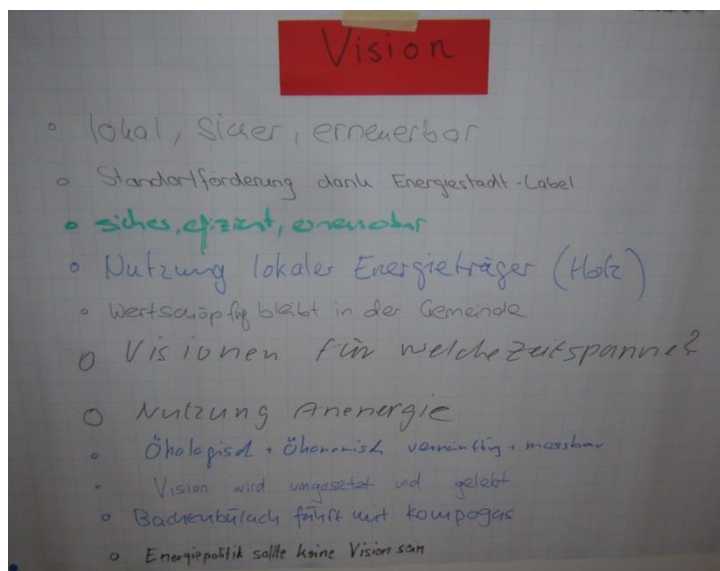 Vision
lokal, sicher, erneuerbar
Standortförderung dank Energiestadt-Label
sicher, efizient, erneuerbar
Nutzung lokaler Energieträger (Holz)
Wertschöpfung bleibt in der Gemeinde
Visionen für welche Zeitspanne?
Nutzung Anenergie
Ökologisch + Ökonomisch vernünftig + messbar
Vision wird umgesetzt und gelebt
Bachenbülach fährt mit Kompogas
Energiepolitik sollte keine Vision sein